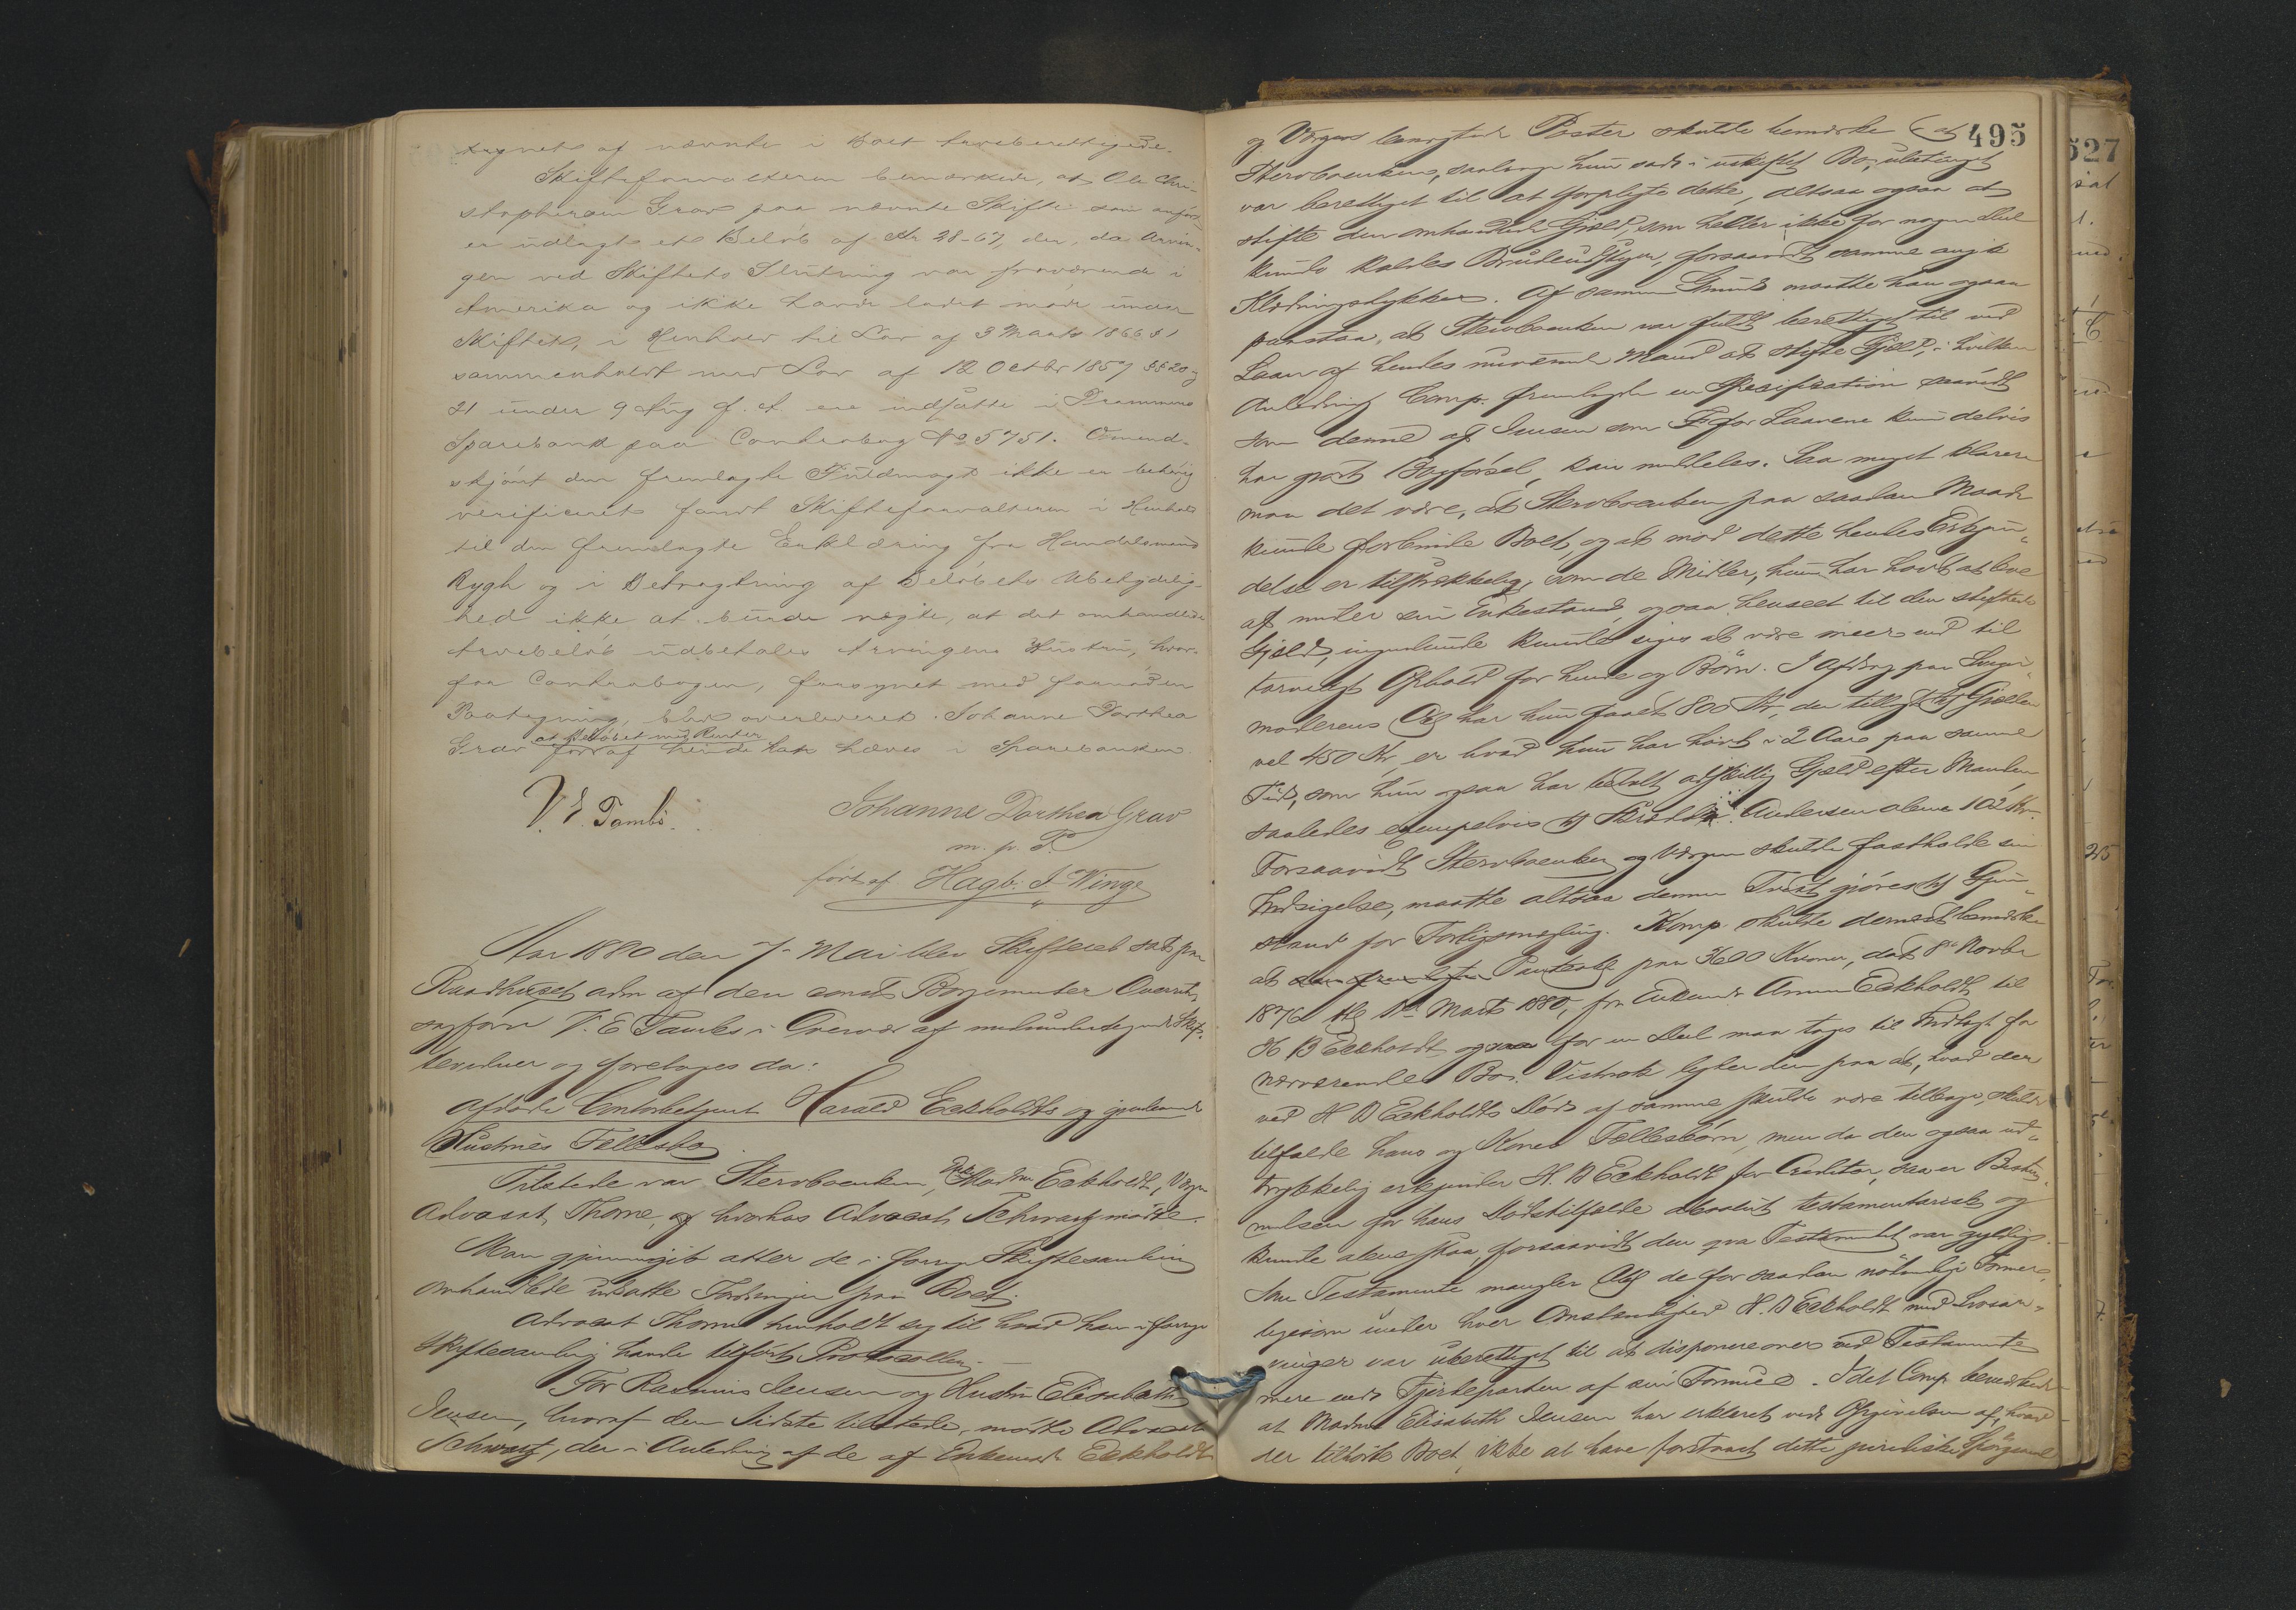 tegnet af nævnte i Boet arveberettigede.
Skifteforvalteren bemærkede, at Ole Chri-
stophersen Grav paa nævnte Skifte som anført
er udlagt et Beløb af Kr 28-67, der, da Arvin-
gen ved Skiftets Slutning var fraværende i
Amerika og ikke havde ladet møde under
Skiftet, i Henhold til Lov af 3 Marts 1866 § 1
sammenholdt med Lov af 12 Octbr 1857 §§ 20 og
21 under 9 Aug f. A. ere indsatte i Drammens
Sparebank paa Contrabog No 5751. Omend-
skjönt den fremlagte Fuldmagt ikke er behörig
verificeret fandt Skifteforvalteren i Henhold
til den fremlagte Erklæring fra Handelsmand
Rygh og i Betragtning af Beløbets Ubetydelig-
hed ikke at burde nægte, at det omhandlede
Arvebeløb udbetales Arvingens Hustru, hvor-
for Contrabogen, forsynet med fornøden
Paategning, blev overleveret Johanne Dorthea
at Beløbet med Renter
Grav for af hende hæves i Sparebanken.
V. E. Tambs.
Johanne Dorthea Grav
m. p. P.
ført af Hagb. J. Winge
Aar 1880 den 7 Mai blev Skifteret sat paa
Raadhuset adm af den const Borgemester Overrets
sagfører V. E Tambs i Overvær af medundertegnede Skif-
tevidner og foretoges da:
Afdøde Contorbetjent Harald Eckholdts og gjenlevende
Hustrues Fællesbo.
Tilstede var Stervboenken, Enkemadm Eckholdt, Værgen
Advocat Thorne, og hvorhos Advocat Schwartz mødte.
Man gjennemgik atter de i forrige Skiftesamling
omhandlede udsatte Fordringer paa Boet.
Advocat Thorne henholdt sig til hvad han i forrige
Skiftesamling havde tilført Protocollen.
For Rasmus Jensen og Hustru Elisabeth
Jensen, hvoraf den Sidste tilstede, mødte Advocat
Schwartz, der i Anledning af de af Enkemad Eckholdt
495
og Værgen benægtede Poster skulde bemærke at
Stervboenken, saalænge hun sad i uskiftet Bo, ubetinget
var berettiget til at forpligte dette, altsaa ogsaa at
stifte den omhandlede Gjæld, som heller ikke for nogen Deel
kunde kaldes Brudeudstyr, forsaavidt samme angik
Klædningsstykker. Af samme Grund maatte han ogsaa
paastaa, at Stervboenken var fuldt berettiget til ved
Laan af hendes nuværende Mand at stifte Gjæld, i hvilken
Anledning Comp. fremlagde en Specification saavidt
som denne af Jensen som for Laanene kun delvis
har gjort Bogførsel, kan meddeles. Saa meget klarere
maa det være, at Stervboenken paa saadan Maade
kunde forbinde Boet, og at mod dette hendes Erkjen-
delse er tilstrækkelig, som de Midler, hun har havt at leve
af under sin Enkestand, ogsaa henseet til den stiftede
Gjæld, ingenlunde kunde siges at være meer end til
tarveligt Ophold for hende og Børn. I Afdrag paa Svige-
moderens Obl har hun faaet 800 Kr, der tillagt Gjælden
vel 450 Kr, er hvad hun har havt i 2 Aar paa samme
Tid, som hun ogsaa har betalt adskillig Gjæld efter Manden
saaledes exempelvis til Andersen alene 102 Kr.
Forsaavidt Stervboenken og Værgen skulde fastholde sin
Indsigelse, maatte altsaa denne Tvist gjöres til Gjen-
stand for Forligsmægling. Komp. skulde dernæst bemærke
at den fremlagte Panteobl paa 3600 Kroner, dat 8de Novbr
1876 Marts 1880, fra Enkemad Anna Eckholdt til
H B Eckholdt ogsaa for en Deel maa tages til Indtægt for
nærværende Bo. Vistnok lyder den paa at, hvad der
ved H B Eckholdts Død af samme skulde være tilbage, skulde
tilfalde hans og Kones Fællesbørn, men da den ogsaa ud-
trykkelig erkjender H. B Eckholdt for Creditor, saa er Bestem-
melsen for hans Dødstilfælde absolut testamentarisk og
kunde alene staa, forsaavidt den qva Testament var gyldig.
Som Testamente mangler Obl de for saadan nødvendige Former,
ligesom under hver Omstændighed H. B Eckholdt med Livsar-
vinger var uberettiget til at disponere over ved Testamente
mere end Fjerdeparten af sin Formue. Idet Comp bemærkede
at Madm Elisabeth Jensen har erklæret ved Opgivelsen af, hvad
der tilhørte Boet, ikke at have forstaaet dette juridiske Spørgsmaal
527